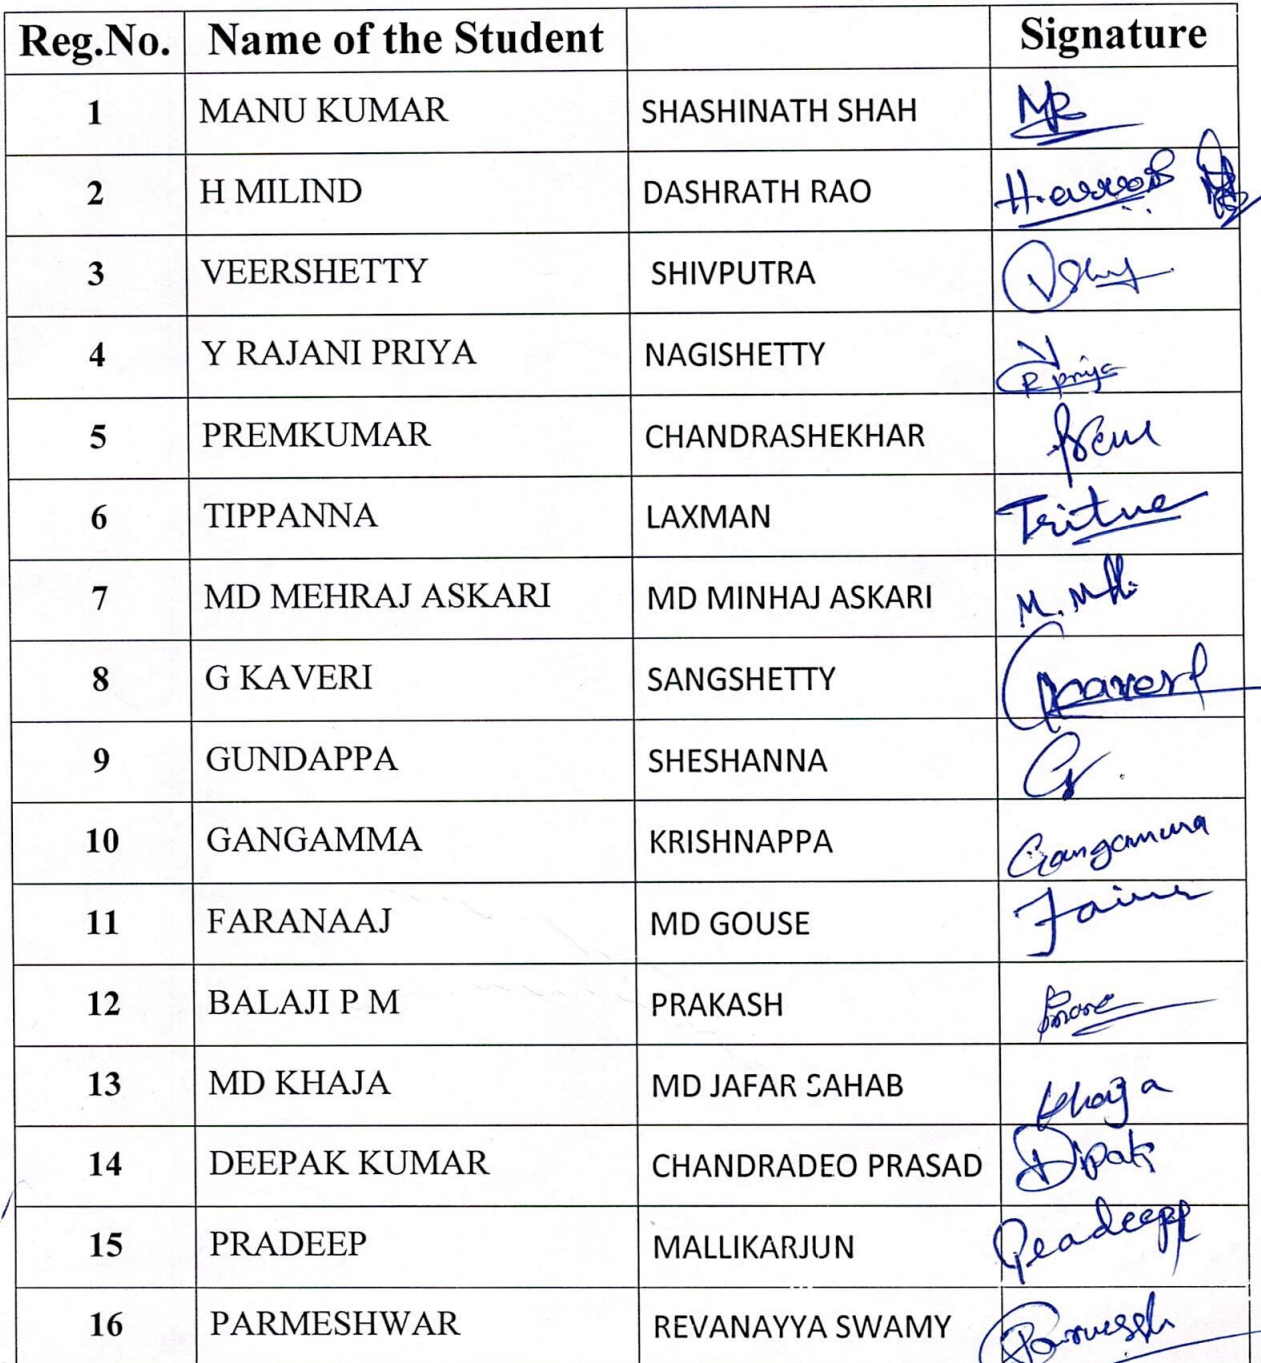 Reg.No. Name of the Student Signature
1 MANU KUMAR SHASHINATH SHAH MK
2 H MILIND DASHRATH RAO
3 VEERSHETTY SHIVPUTRA
4 Y RAJANI PRIYA NAGISHETTY R priya
5 PREMKUMAR CHANDRASHEKHAR Prem
6 TIPPANNA LAXMAN
7 MD MEHRAJ ASKARI MD MINHAJ ASKARI
8 G KAVERI SANGSHETTY
9 GUNDAPPA SHESHANNA
10 GANGAMMA KRISHNAPPA Gangamma
11 FARANAAJ MD GOUSE
12 BALAJI P M PRAKASH
13 MD KHAJA MD JAFAR SAHAB Khaja
14 DEEPAK KUMAR CHANDRADEO PRASAD Dipak
15 PRADEEP MALLIKARJUN
16 PARMESHWAR REVANAYYA SWAMY